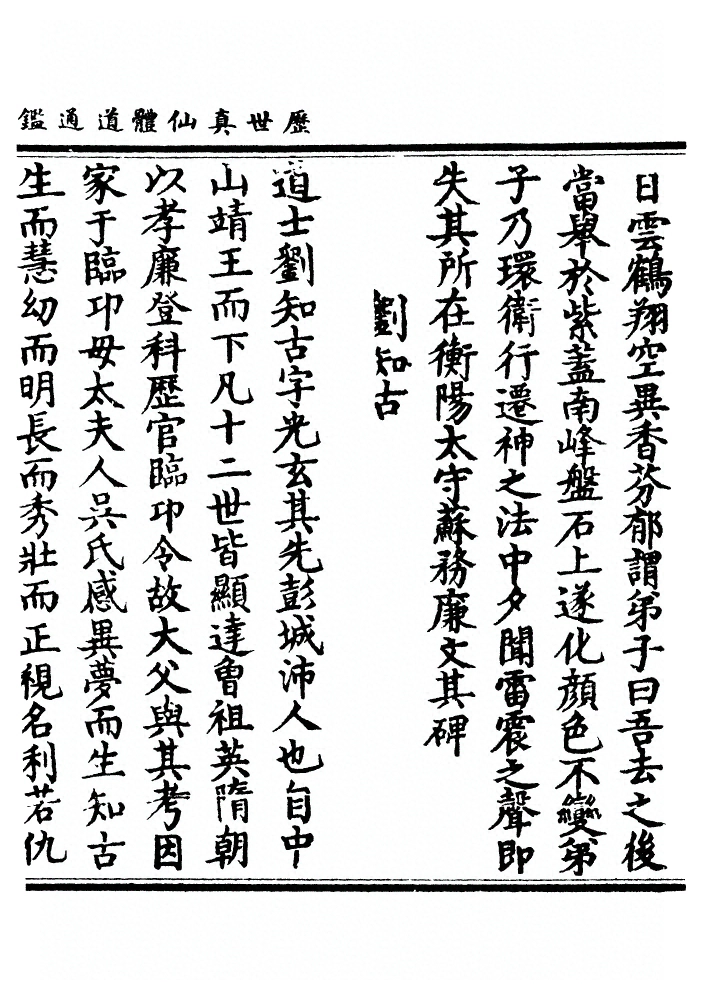 歷世真仙體道通鑑
日雲鶴翔空異香芬郁謂弟子曰吾去之後
當舉於紫蓋南峰盤石上遂化顏色不變弟
子乃環衛行遷神之法中夕聞雷震之聲即
失其所在衡陽太守蘇務廉文其碑
劉知古
道士劉知古字光玄其先彭城沛人也自中
山靖王而下凡十二世皆顯達曾祖英隋朝
以孝廉登科歷官臨邛令故大父與其考因
家于臨邛母太夫人吳氏感異夢而生知古
生而慧幼而明長而秀壯而正視名利若仇